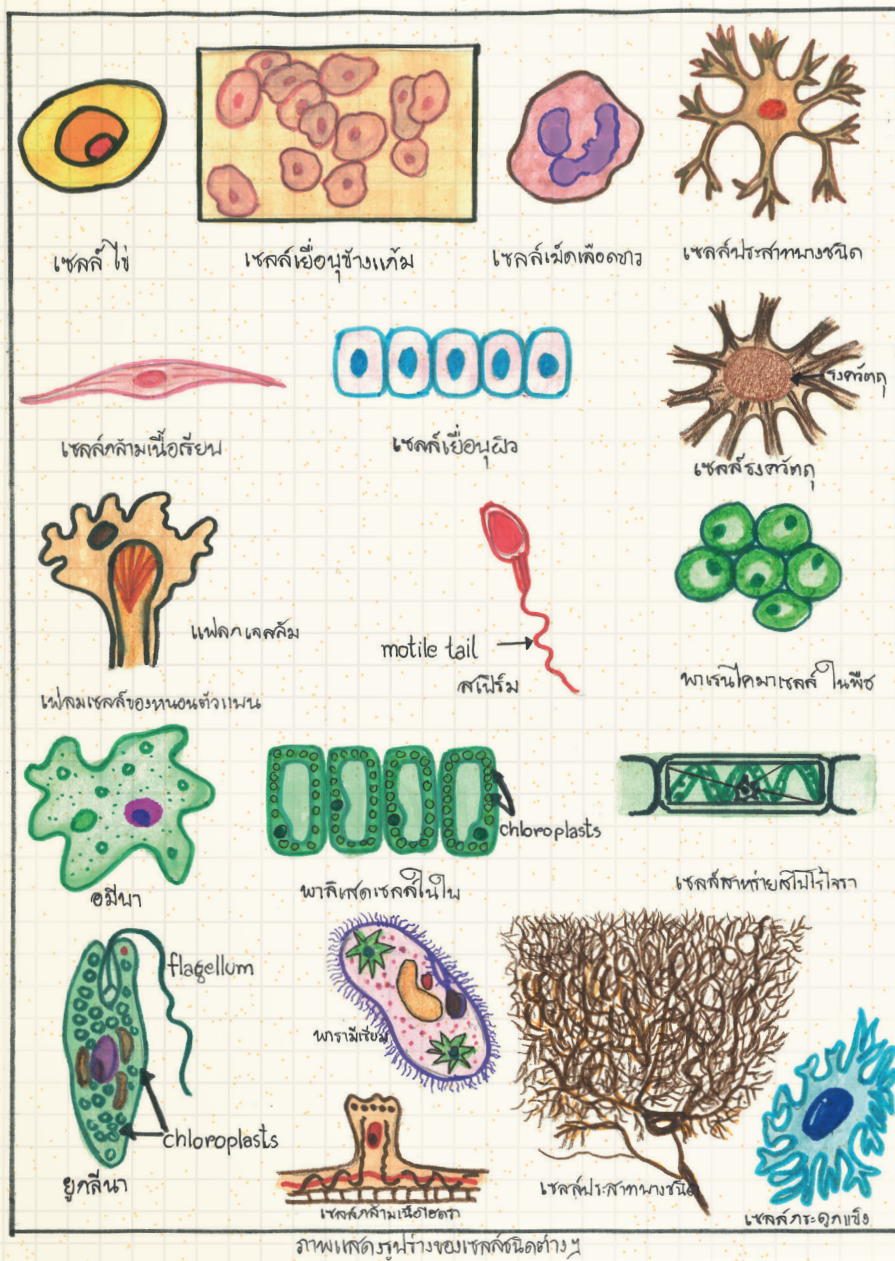 เซลล์ไข่
เซลล์เยื่อบุข้างแก้ม
เซลล์เม็ดเลือดขาว
เซลล์ประสาทบางชนิด
เซลล์กล้ามเนื้อเรียบ
เซลล์เยื่อบุผิว
รงควัตถุ
เซลล์รงควัตถุ
แฟลกเจลลัม
เฟลมเซลล์ของหนอนตัวแบน
motile tail
สเปิร์ม
พาเรนไคมาเซลล์ในพืช
อมีบา
chloroplasts
พาลิเสดเซลล์ในใบ
เซลล์สาหร่ายสไปโรไจรา
flagellum
chloroplasts
ยูกลีนา
พารามีเซียม
เซลล์กล้ามเนื้อไฮดรา
เซลล์ประสาทบางชนิด
เซลล์กระดูกแข็ง
ภาพแสดงรูปร่างของเซลล์ชนิดต่างๆ